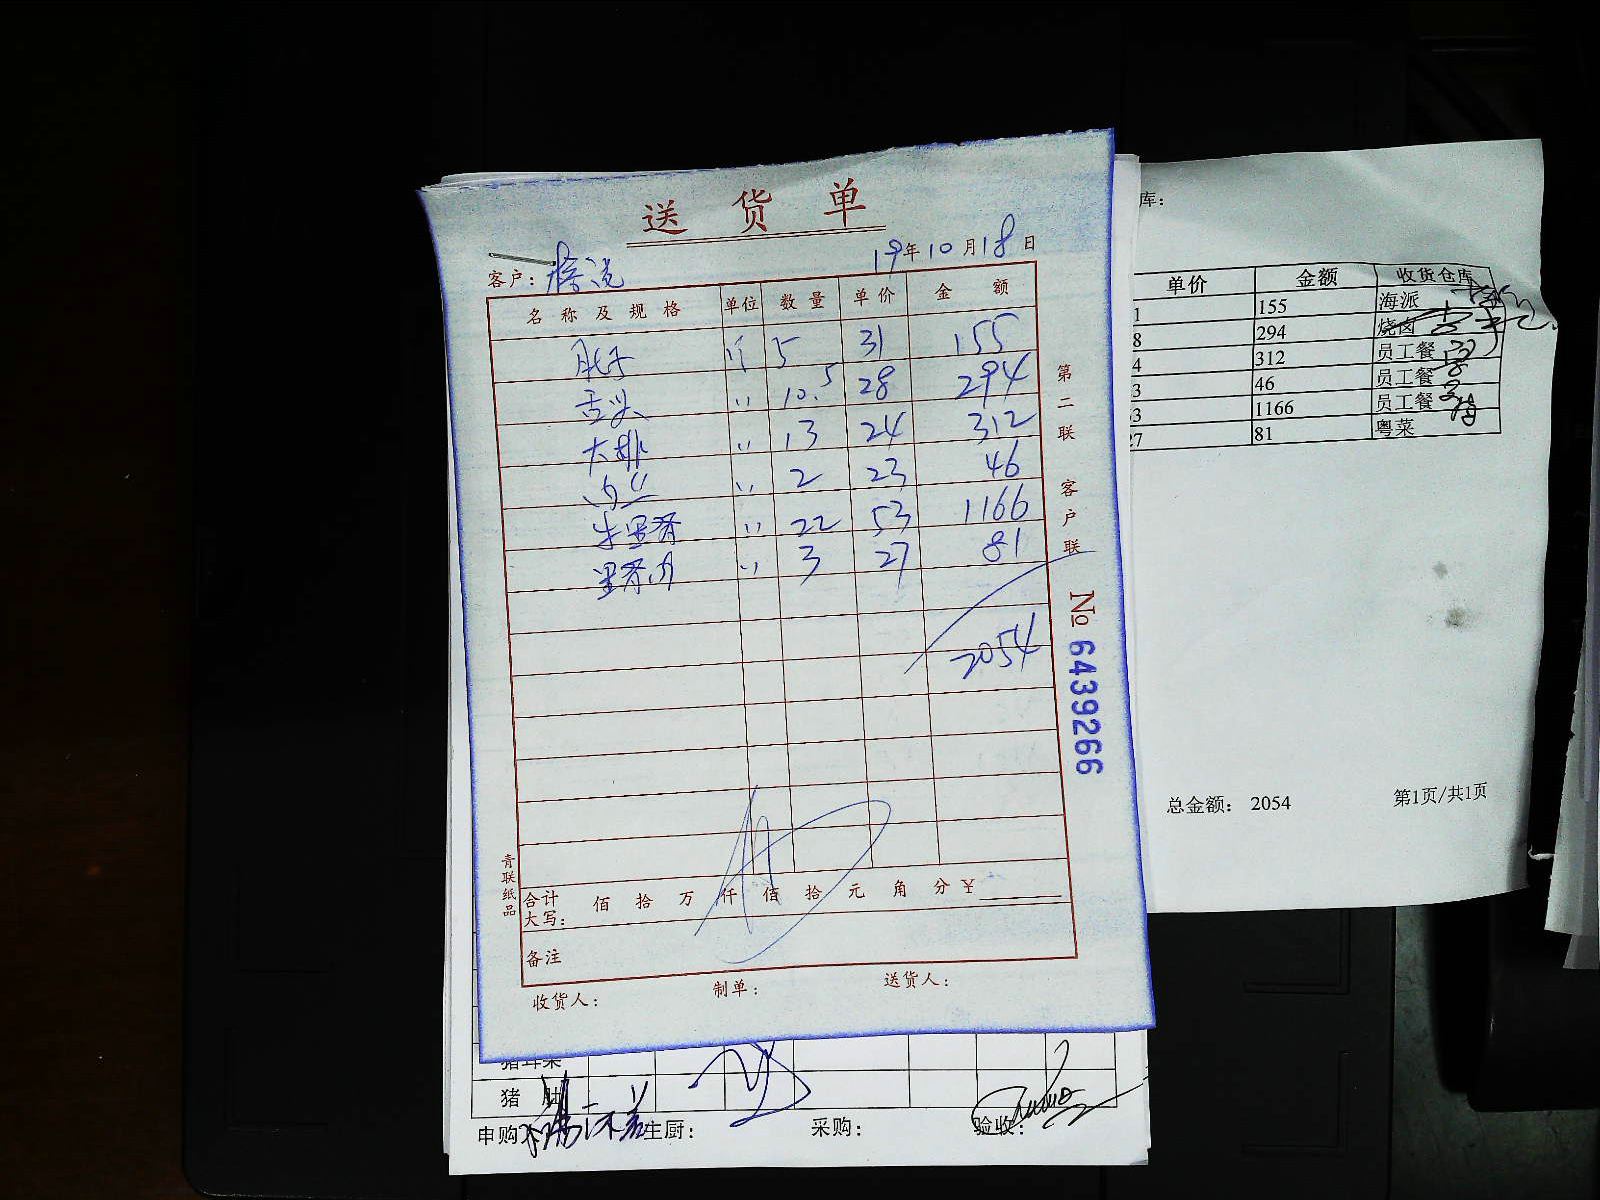 送货单
19年10月18日
客户：
名称及规格 单位 数量 单价 金额
肚子 斤 5 31 155
舌头 〃 10.5 28 294
大排 〃 13 24 312
肉丝 〃 2 23 46
牛里脊 〃 22 53 1166
里脊肉 〃 3 27 81
2054
合计大写： 佰 拾 万 仟 佰 拾 元 角 分 ¥
备注
收货人： 制单： 送货人：
第二联 客户联
№ 6439266
青联纸品
库：
单价 金额 收货仓库
1 155 海派
8 294 烧卤
4 312 员工餐
3 46 员工餐
53 1166 员工餐
27 81 粤菜
总金额： 2054 第1页/共1页
猪耳朵
猪 肚
申购 主厨： 采购： 验收：